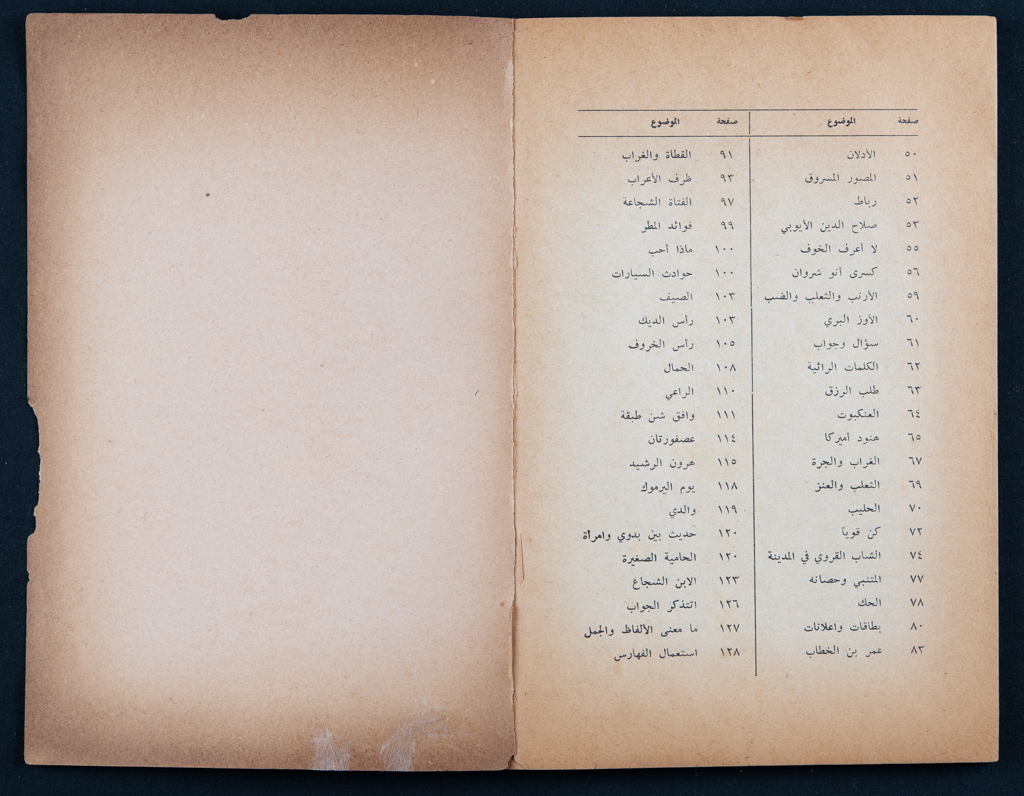 صفحة الموضوع
٥٠ الأدلان
٥١ المصور المسروق
٥٢ رباط
٥٣ صلاح الدين الأيوبي
٥٥ لا أعرف الخوف
٥٦ كسرى أنو شروان
٥٩ الأرنب والثعلب والضب
٦٠ الأوز البري
٦١ سؤال وجواب
٦٢ الكلمات الرائية
٦٣ طلب الرزق
٦٤ العنكبوت
٦٥ هنود أميركا
٦٧ الغراب والجرة
٦٩ الثعلب والعنز
٧٠ الحليب
٧٢ كن قوياً
٧٤ الشاب القروي في المدينة
٧٧ المتنبي وحصانه
٧٨ الحك
٨٠ بطاقات واعلانات
٨٣ عمر بن الخطاب
صفحة الموضوع
٩١ القطاة والغراب
٩٣ ظرف الأعراب
٩٧ الفتاة الشجاعة
٩٩ فوائد المطر
١٠٠ ماذا أحب
١٠٠ حوادث السيارات
١٠٣ الصيف
١٠٣ رأس الديك
١٠٥ رأس الخروف
١٠٨ الحمال
١١٠ الراعي
١١١ وافق شن طبقة
١١٤ عصفورتان
١١٥ هرون الرشيد
١١٨ يوم اليرموك
١١٩ والدي
١٢٠ حديث بين بدوي وامرأة
١٢٠ الحامية الصغيرة
١٢٣ الابن الشجاع
١٢٦ اتتذكر الجواب
١٢٧ ما معنى الألفاظ والجمل
١٢٨ استعمال الفهارس